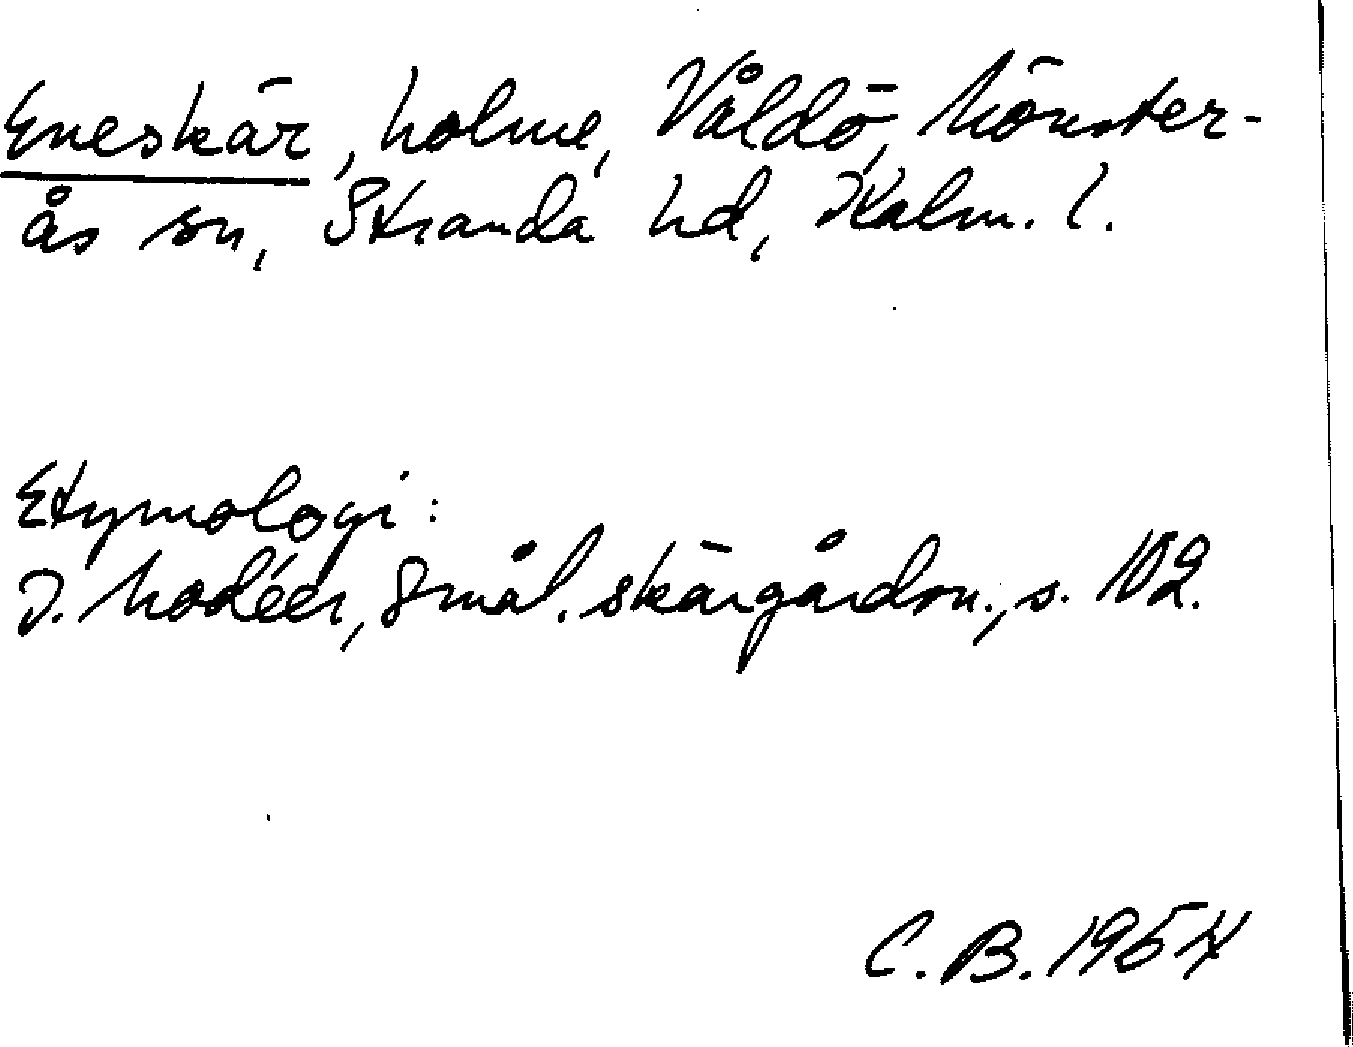 Eneskär, holme, Våldö, Mönster-
ås sn, Stranda hd, Kalm. l.
Etymologi:
I. Modéer, Smål. skärgårdsn., s. 102.
C. B. 1954